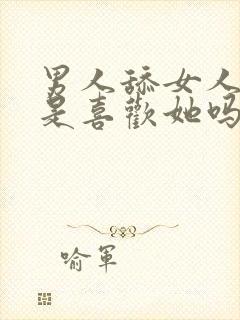 男人舔女人
是喜歡她吗
喻軍